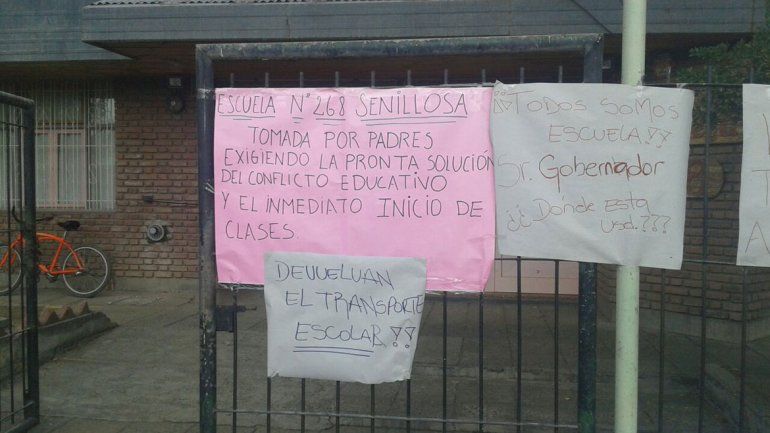 ESCUELA Nº 268 SENILLOSA
TOMADA POR PADRES
EXIGIENDO LA PRONTA SOLUCIÓN
DEL CONFLICTO EDUCATIVO
Y EL INMEDIATO INICIO DE
CLASES.
¡¡TODOS SOMOS
ESCUELA!!
Sr. Gobernador
¿¿Dónde esta
usd.???
DEVUELVAN
EL TRANSPORTE
ESCOLAR!!